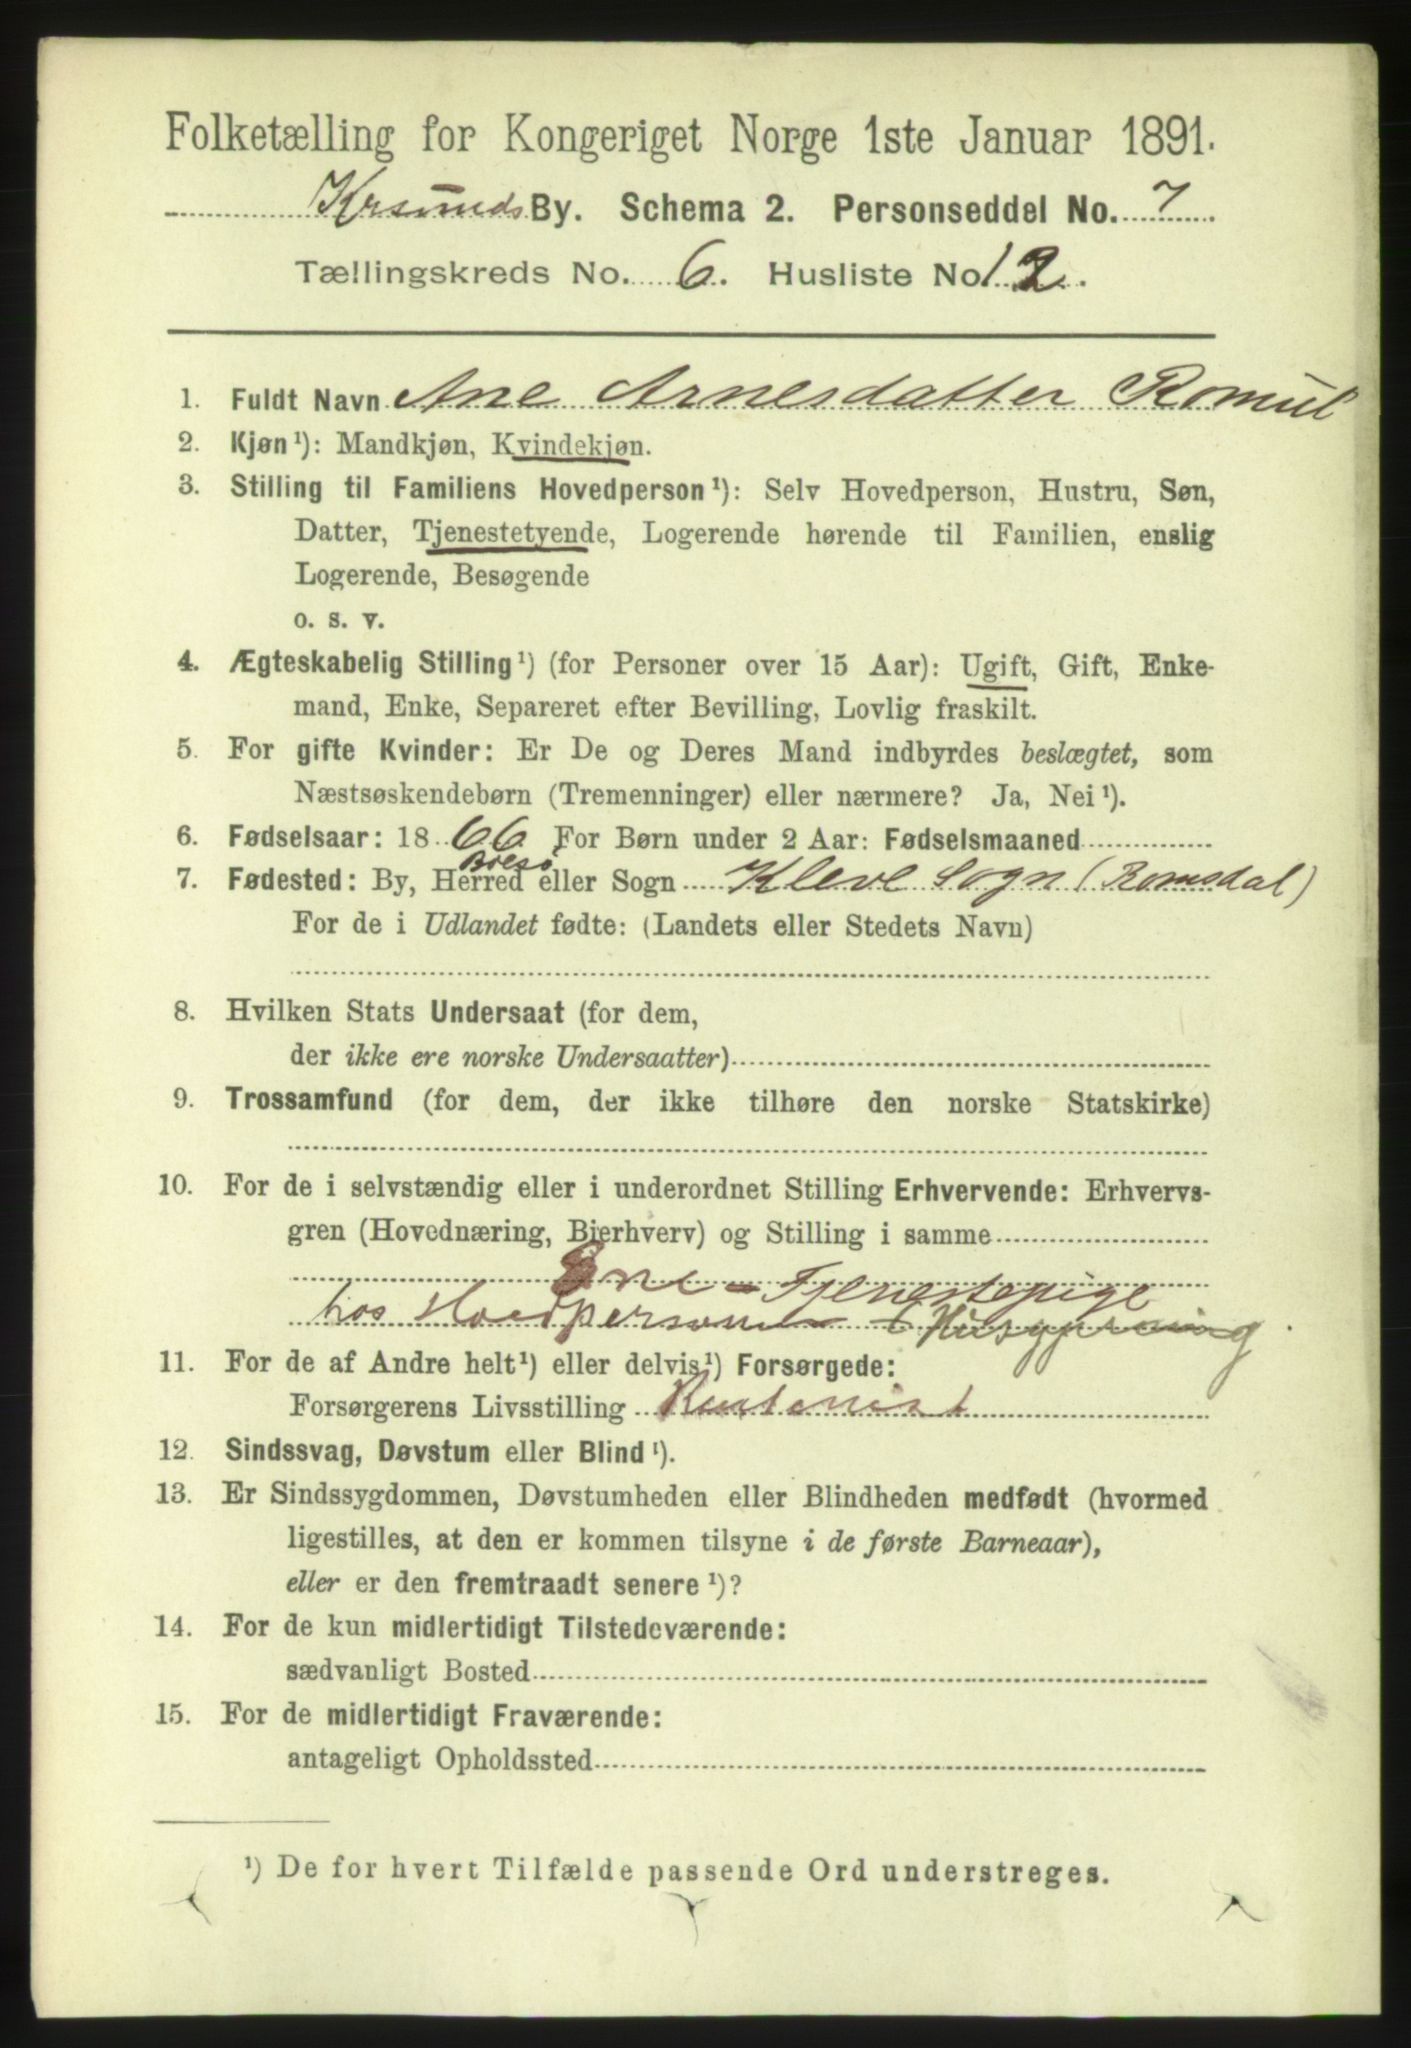 Folketælling for Kongeriget Norge 1ste Januar 1891.
Krsunds By. Schema 2. Personseddel No. 7.
Tællingskreds No. 6. Husliste No. 12.
1. Fuldt Navn Ane Arnesdatter Romül
2. Kjøn ¹): Mandkjøn, Kvindekjøn.
3. Stilling til Familiens Hovedperson ¹): Selv Hovedperson, Hustru, Søn,
Datter, Tjenestetyende, Logerende hørende til Familien, enslig
Logerende, Besøgende
o. s. v.
4. Ægteskabelig Stilling ¹) (for Personer over 15 Aar): Ugift, Gift, Enke-
mand, Enke, Separeret efter Bevilling, Lovlig fraskilt.
5. For gifte Kvinder: Er De og Deres Mand indbyrdes beslægtet, som
Næstsøskendebørn (Tremenninger) eller nærmere? Ja, Nei ¹).
6. Fødselsaar: 18 66 For Børn under 2 Aar: Fødselsmaaned
Bolsø
7. Fødested: By, Herred eller Sogn Kleve Sogn (Romsdal)
For de i Udlandet fødte: (Landets eller Stedets Navn)
8. Hvilken Stats Undersaat (for dem,
der ikke ere norske Undersaatter)
9. Trossamfund (for dem, der ikke tilhøre den norske Statskirke)
10. For de i selvstændig eller i underordnet Stilling Erhvervende: Erhvervs-
gren (Hovednæring, Bierhverv) og Stilling i samme
Ene-Tjenestepige
hos Hovedpersonen i Husgjerning
11. For de af Andre helt ¹) eller delvis ¹) Forsørgede:
Forsørgerens Livsstilling Rentenist
12. Sindssvag, Døvstum eller Blind ¹).
13. Er Sindssygdommen, Døvstumheden eller Blindheden medfødt (hvormed
ligestilles, at den er kommen tilsyne i de første Barneaar),
eller er den fremtraadt senere ¹)?
14. For de kun midlertidigt Tilstedeværende:
sædvanligt Bosted
15. For de midlertidigt Fraværende:
antageligt Opholdssted
¹) De for hvert Tilfælde passende Ord understreges.